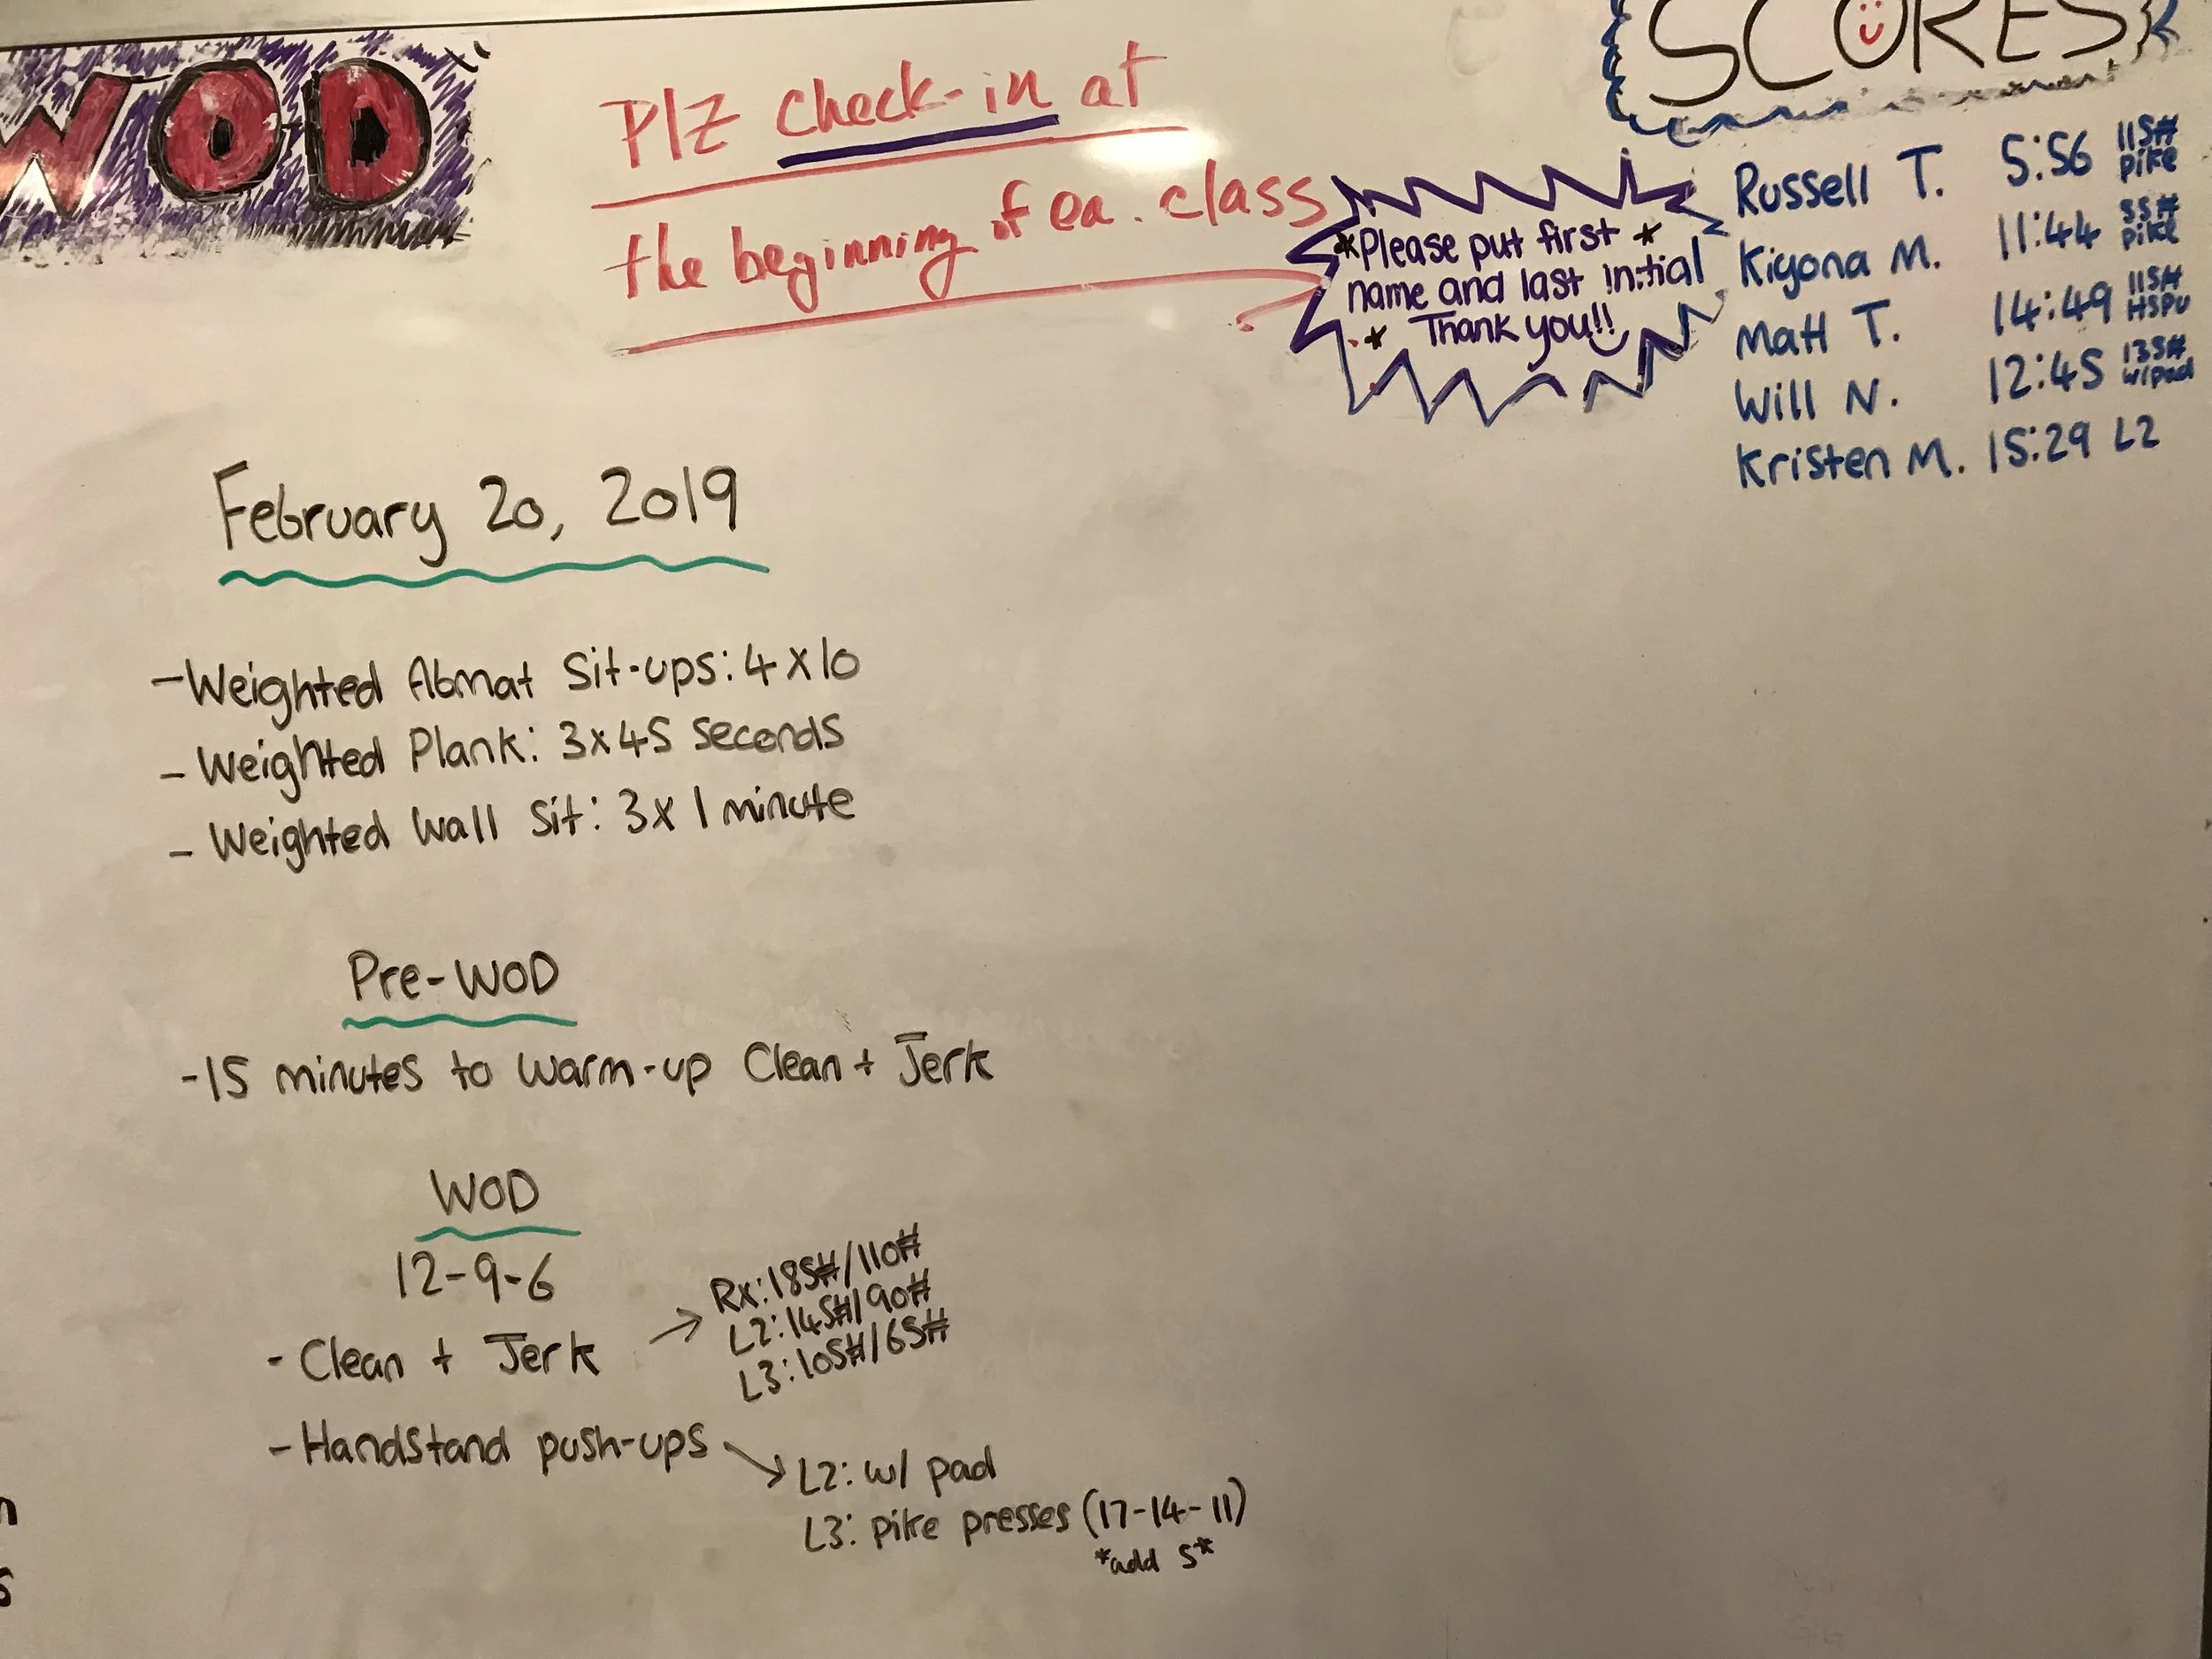 WOD
Plz check-in at
the beginning of ea. class
*Please put first *
name and last initial
* Thank you!!
SCORES
Russell T. 5:56 115# pike
Kiyona M. 11:44 55# pike
Matt T. 14:49 115# HSPU
Will N. 12:45 135# w/pad
Kristen M. 15:29 L2
February 20, 2019
- Weighted Abmat Sit-ups: 4 x 10
- Weighted Plank: 3 x 45 seconds
- Weighted Wall Sit: 3 x 1 minute
Pre-WOD
- 15 minutes to warm-up Clean + Jerk
WOD
12-9-6
- Clean + Jerk → Rx: 185#/110#
L2: 145#/90#
L3: 105#/65#
- Handstand push-ups
L2: w/ pad
L3: pike presses (17-14-11)
*add 5*